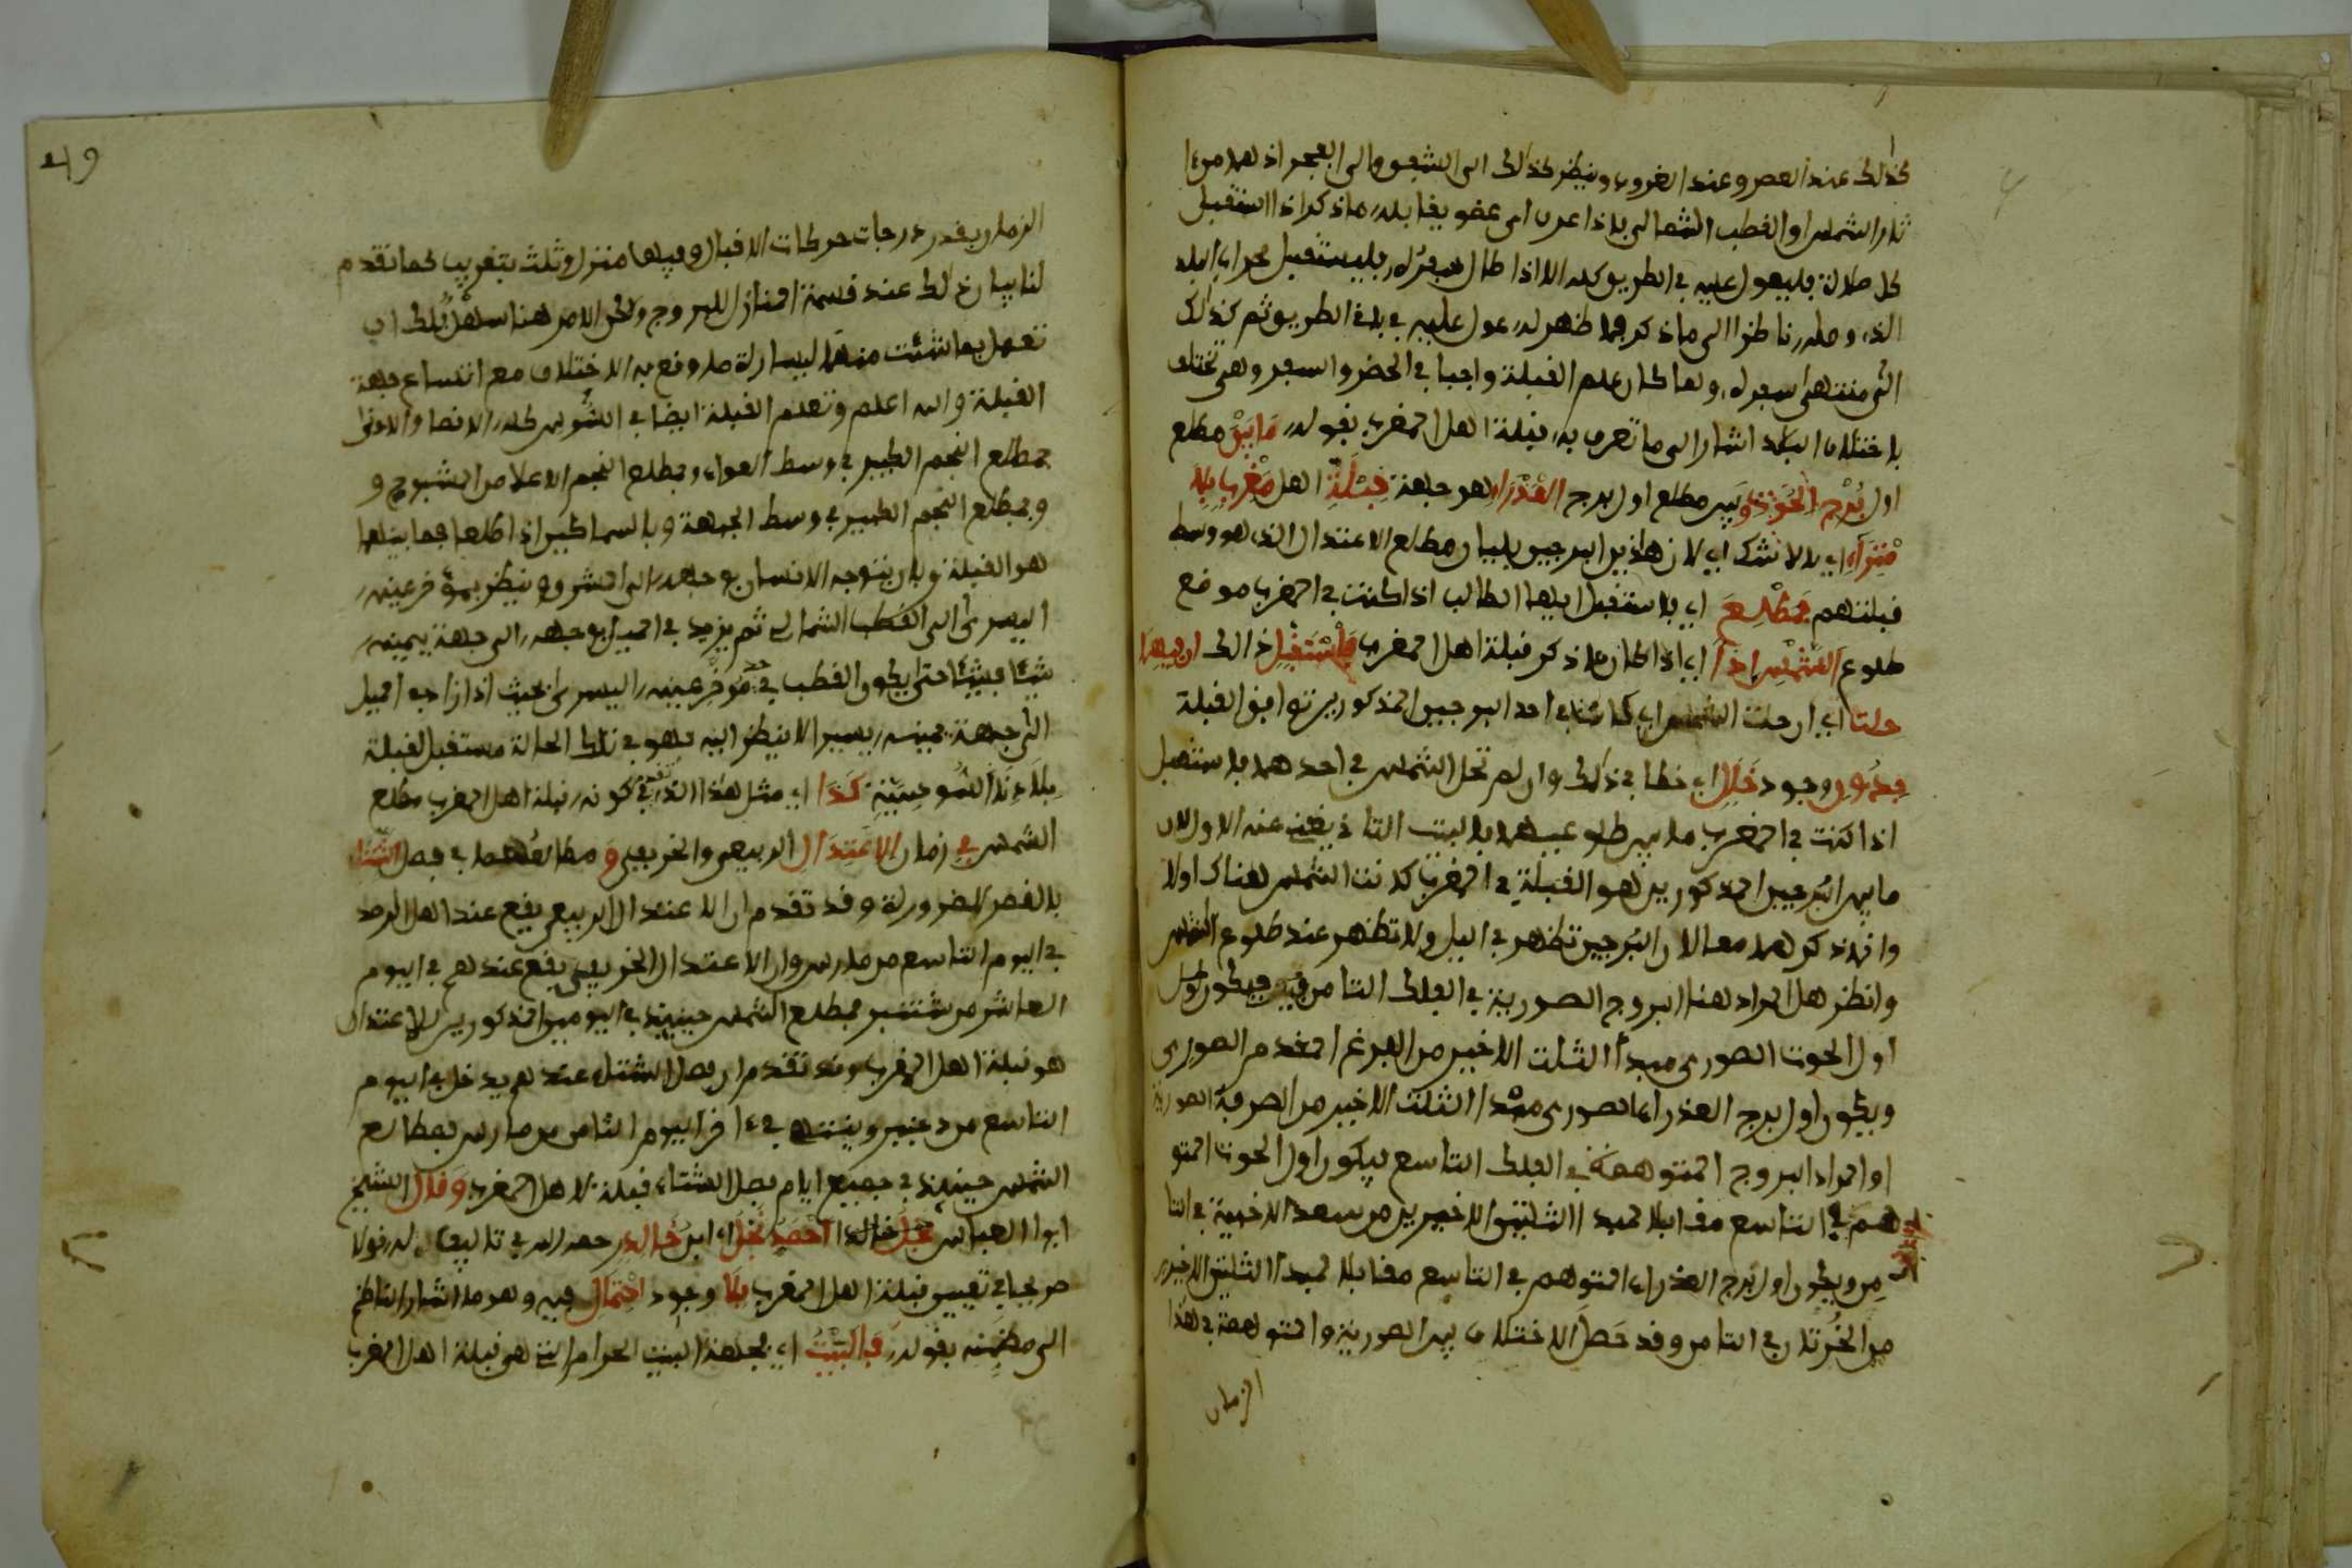 كذلك عند العصر وعند الغروب وينظر كذلك الى الشفق والى الفجر اذ هما من
ثار الشمس او القطب الشمالي فاذا عرف اي عضو يقابله ما ذكر اذا استقبل
كل صلاة فليعول عليه في الطريق كله الا اذا طال سفره فليستقبل محراب البلد
الذي وصله ناظرا الى ما ذكر فما ظهر له عول عليه في بلغ الطريق ثم كذلك
الى منتهى سفره ولما كان علم القبلة واجبا في الحضر والسفر وهي تختلف
باختلاف البلاد اشار الى ما تعرف به قبلة اهل المغرب بقوله ما بين مطلع
اول برج الحوت وبين مطلع اول برج العذراء هو جهة قبلة اهل مغرب بلا
مراء اي بلا شك اي لان هاذين البرجين يليان مطلع الاعتدال الذي هو وسط
قبلتهم فمطلع اي فاستقبل ايها الطالب اذا كنت في المغرب موضع
طلوع الشمس اذا اي اذا كان ما ذكر قبلة اهل المغرب فاستقبل ذالك ان فيهما
حلتا اي ان حلت الشمس اي كائنا في احد البرجين المذكورين توافق القبلة
بدون وجود خلل اي خطا في ذلك وان لم تحل الشمس في احدهما فاستقبل
اذا كنت في المغرب ما بين طلوعيهما فالبيت الثاني يغني عنه الاول لان
ما بين البرجين المذكورين هو القبلة في المغرب كانت الشمس هناك اولا
وانما ذكرهما معا لان البرجين تظهر في اليل ولا تظهر عند طلوع الشمس
وانظر هل المراد هنا البروج الصورية في الفلك الثامن فيكون اول
اول الحوت الصوري مبدأ الثلث الاخير من الفرغ المقدم الصوري
ويكون اول برج العذراء الصوري مبدا الثلث الاخير من الصرفة الصورية
او المراد البروج المتوهمة في الفلك التاسع فيكون اول الحوت المتو
هم في التاسع مقابلا لمبدا الثلثين الاخيرين من سعد الاخبية في الثا
من ويكون اول برج العذراء المتوهم في التاسع مقابلا لمبدا الثلثين الاخيرين
من الخرتان في الثامن وقد حصل الاختلاف بين الصورية والمتوهمة في هذا
الزمان
الزمان بقدر درجات حركات الاقبال وفيها منزل وثلث بتقريب كما تقدم
لنا بيان ذلك عند قسمة المنازل للبروج ولكن الامر هنا سهل فلك ان
تعمل بما شئت منهما ليسارة ما وقع به الاختلاف مع اتساع جهة
القبلة والله اعلم وتعلم القبلة ايضا في السوس كله الاقصا والادنى
بمطلع النجم الكبير في وسط العواء وبمطلع النجم الاعلا من الشبوح و
وبمطلع النجم الكبير في وسط الجبهة وبالسماكين اذا طلعا فما بينهما
هو القبلة وبان يتوجه الانسان بوجهه الى المشرق وينظر بمؤخر عينه
اليسرى الى القطب الشمالي ثم يزيد في الميل بوجهه الى جهة يمينه
شيئا فشيئا حتى يكون القطب في مؤخر عينه اليسرى بحيث اذا زاد به الميل
الى جهة يمينه يسيرا لا ينظر اليه فهو في تلك الحالة مستقبل لقبلة
بلادنا السوسية كذا اي مثل هذا الذي تقدم في كونه قبلة اهل المغرب مطلع
الشمس في زمان الاعتدال الربيعي والخريفي و مطالعهما في فصل الشتاء
بالقصر للضرورة وقد تقدم ان الاعتدال الربيعي يقع عند اهل الرصد
في اليوم التاسع من مارس وان الاعتدال الخريفي يقع عندهم في اليوم
العاشر من شتنبر فمطلع الشمس حينئذ في اليومين المذكورين للاعتدال
هو قبلة اهل المغرب وقد تقدم ان فصل الشتاء عندهم يدخل في اليوم
التاسع من دجنبر وينتهي في اخر اليوم الثامن من مارس فمطالع
الشمس حينئذ في جميع ايام فصل الشتاء قبلة لاهل المغرب وقال الشيخ
ابوا العباس نجل خالد احمد نجل اي ابن خالد رحمه الله في تاليف له قولا
صريحا في تعيين قبلة اهل المغرب بلا وجود احتمال فيه وهو ما اشار الناظم
الى مضمنه بقوله فالبيت اي فجهة البيت الحرام التي هي قبلة اهل المغرب